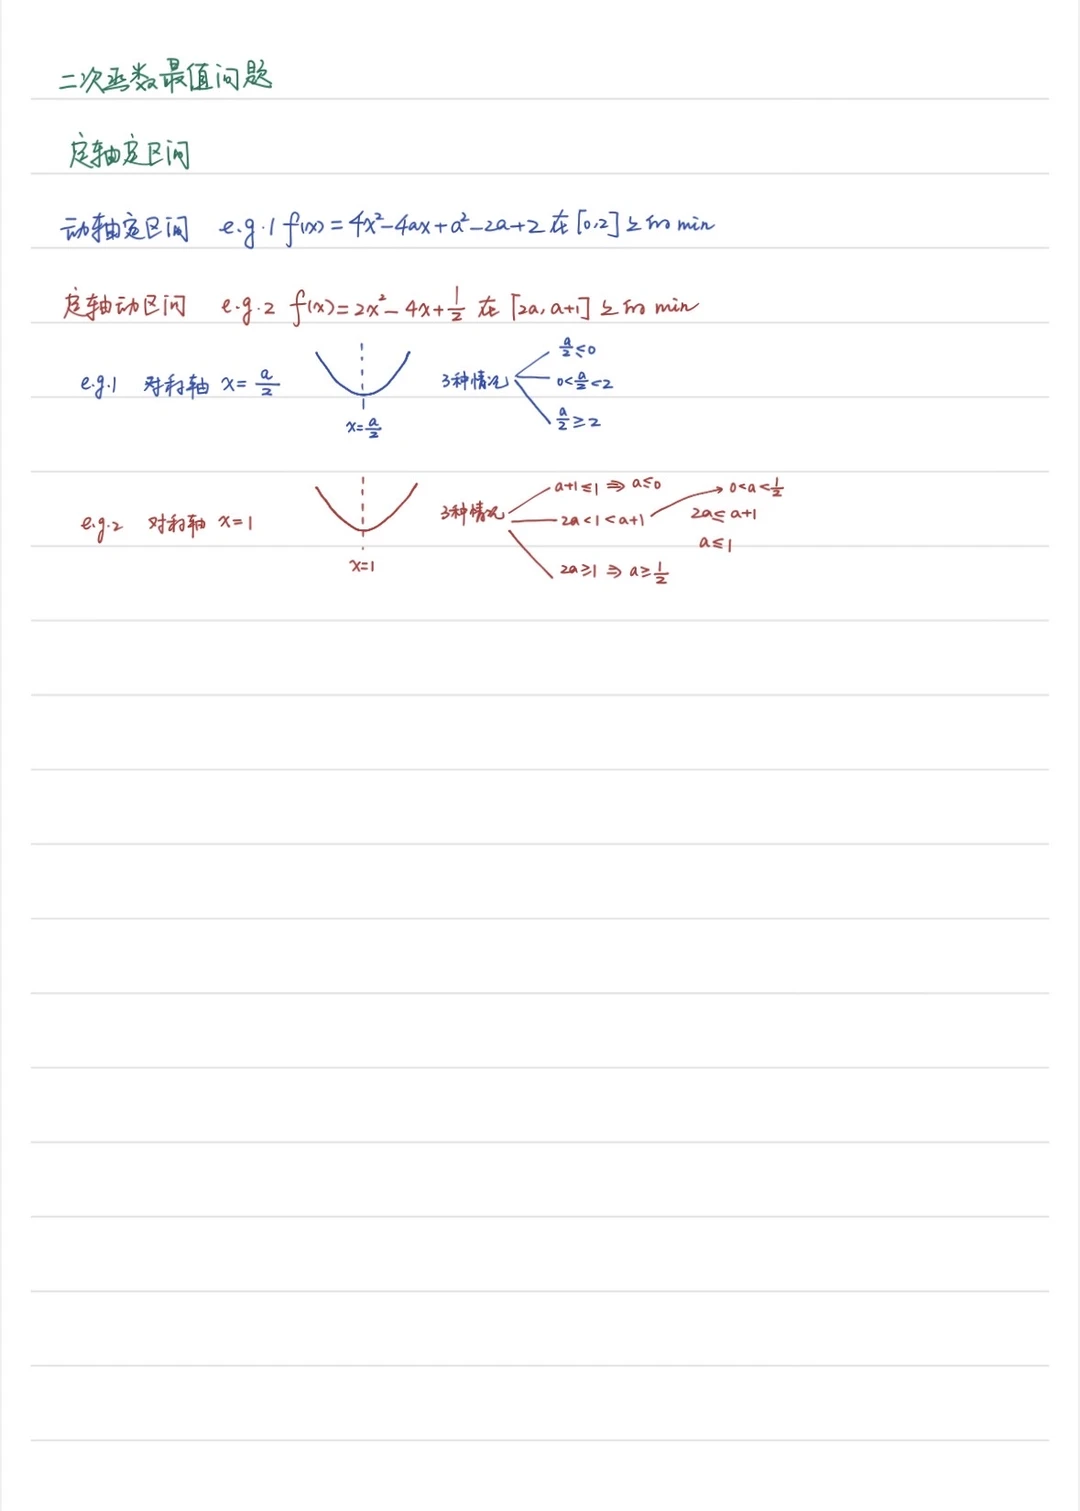 二次函数最值问题
定轴定区间
动轴定区间 e.g.1 f(x)=4x²-4ax+a²-2a+2 在[0,2]上的min
定轴动区间 e.g.2 f(x)=2x²-4x+1/2 在[2a,a+1]上的min
e.g.1 对称轴 x=a/2
x=a/2
3种情况
a/2≤0
0<a/2<2
a/2≥2
e.g.2 对称轴 x=1
x=1
3种情况
a+1≤1⇒a≤0
2a<1<a+1
0<a<1/2
2a≤a+1
a≤1
2a≥1⇒a≥1/2